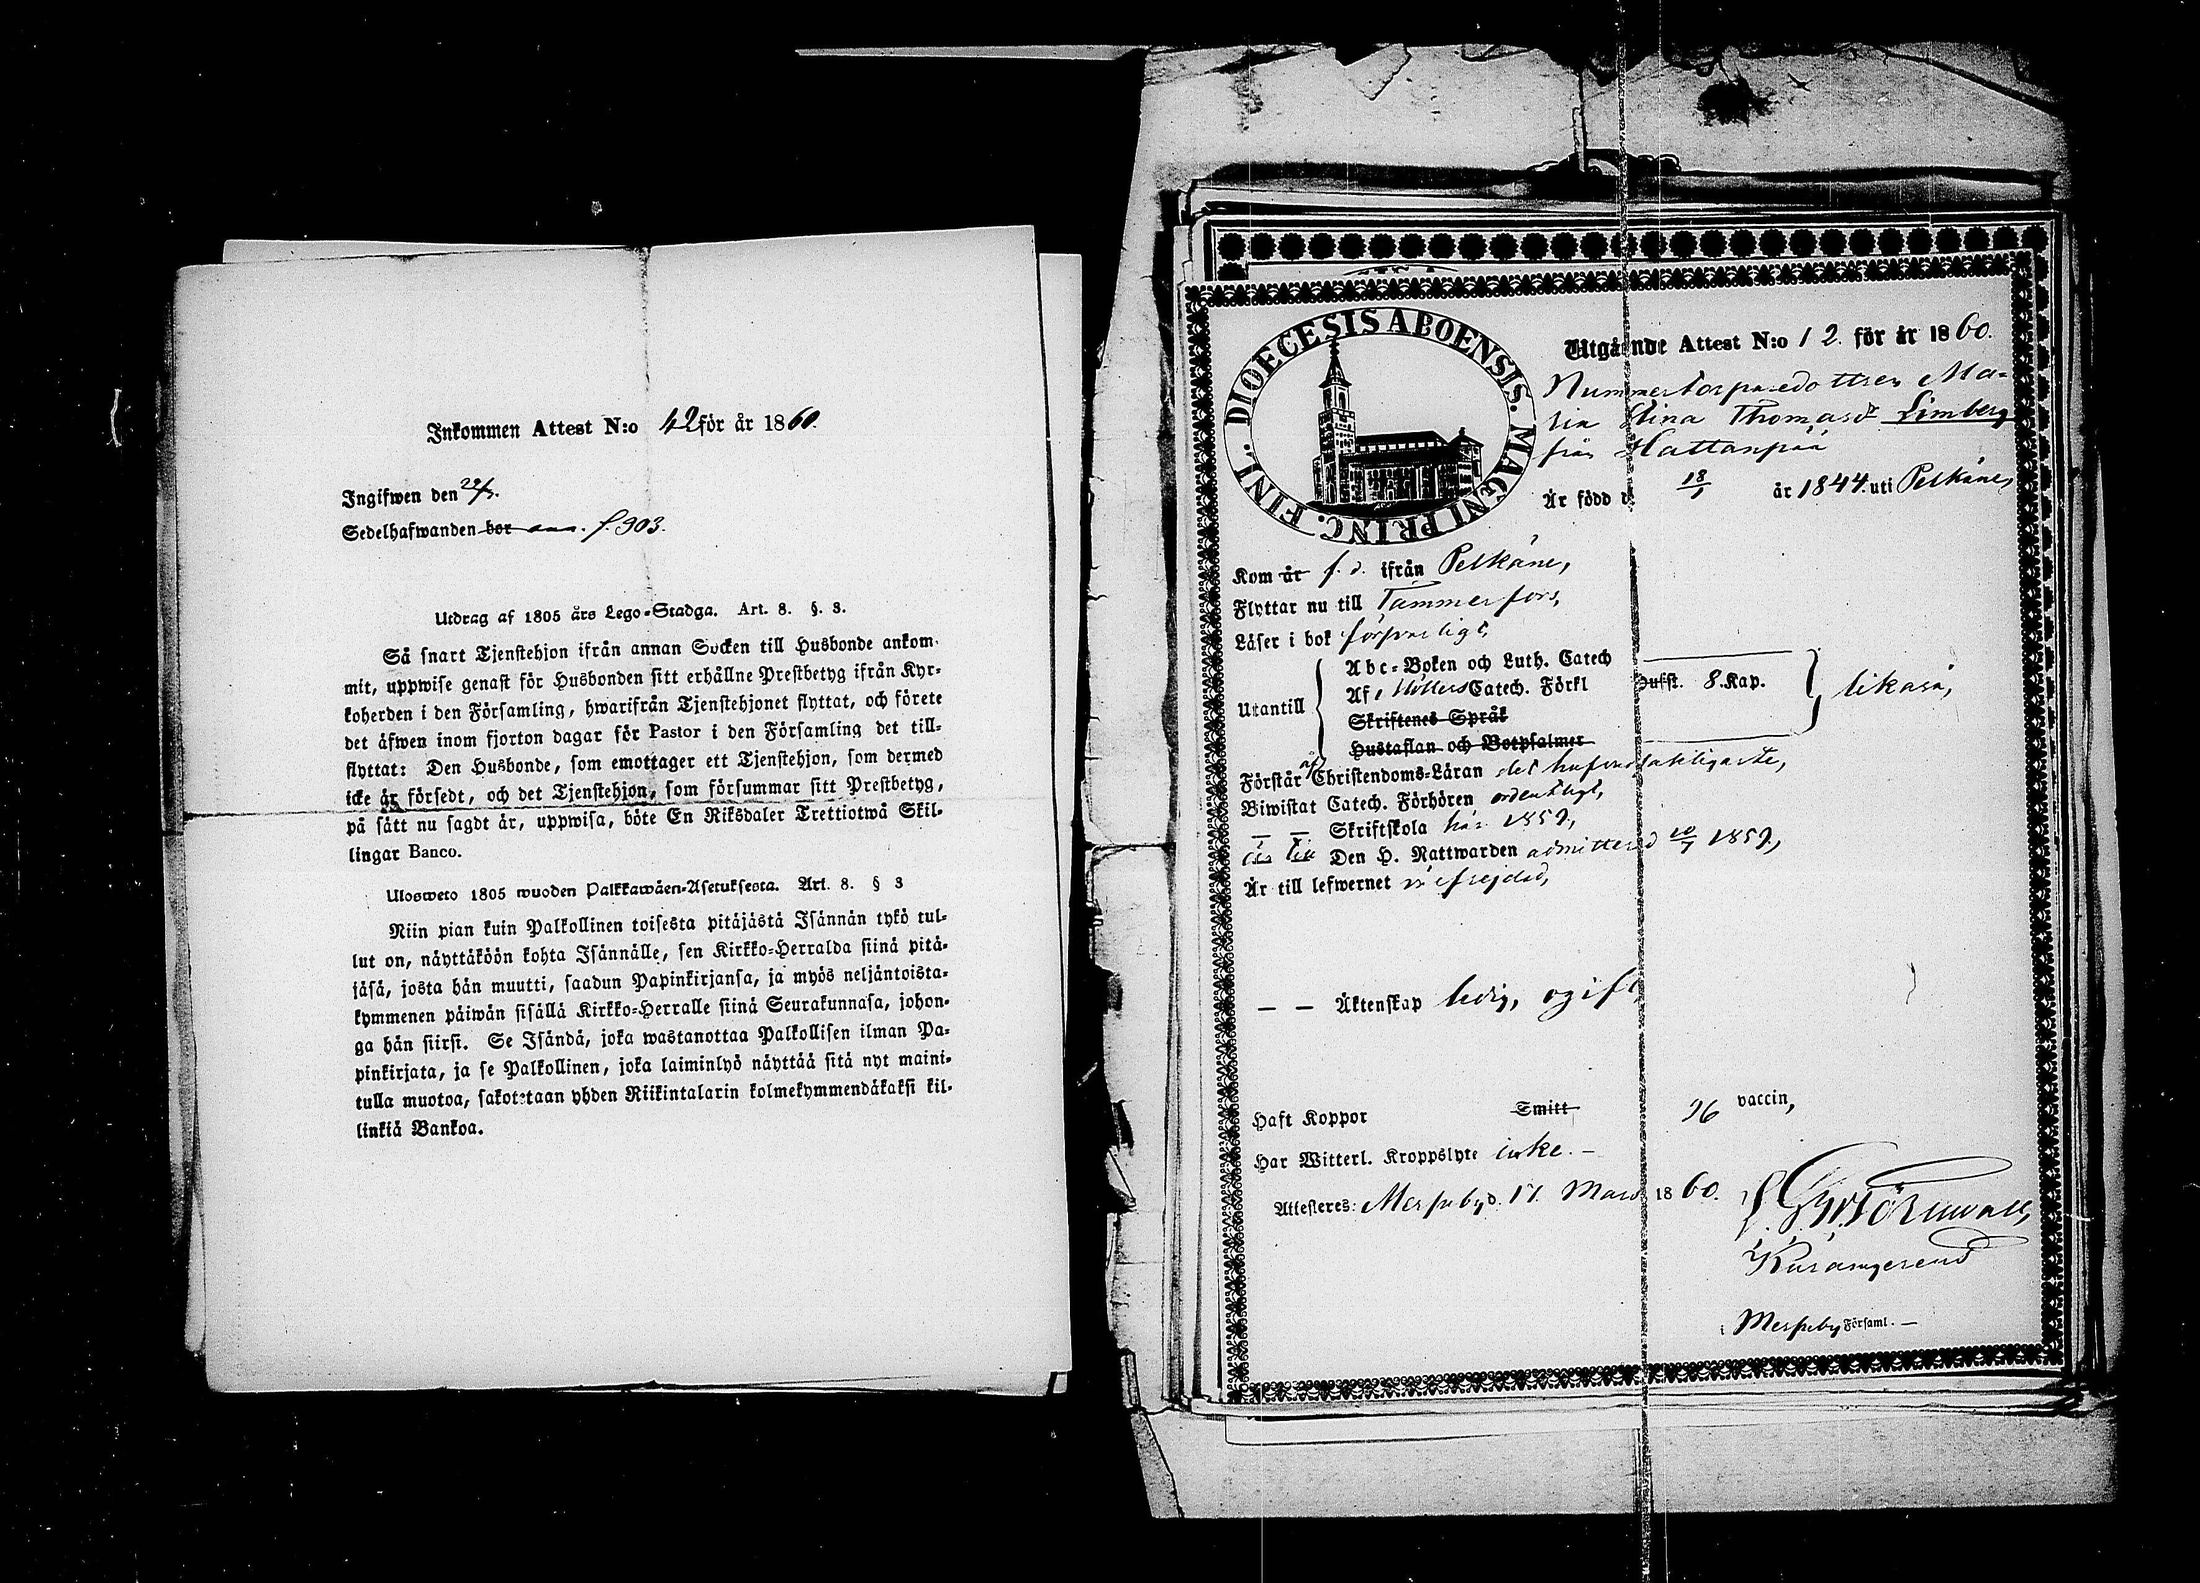 Inkommen Attest N:o 42 för år 1860.
Ingifwen den 29/3.
Sedelhafwanden bor f. 903.
Utdrag af 1805 års Lego-Stadga. Art. 8. §. 3.
Så snart Tjenstehjon ifrån annan Socken till Husbonde ankom-
mit, uppwise genast för Husbonden sitt erhållne Prestbetyg ifrån Kyr-
koherden i den Församling, hwarifrån Tjenstehjonet flyttat, och förete
det äfwen inom fjorton dagar för Pastor i den Församling det till-
flyttat: Den Husbonde, som emottager ett Tjenstehjon, som dermed
icke är försedt, och det Tjenstehjon, som försummar sitt Prestbetyg,
på sätt nu sagdt är, uppwisa, böte En Riksdaler Trettiotwå Skil-
lingar Banco.
Ulosweto 1805 wuoden Palkkawäen-Asetuksesta. Art. 8. § 3
Niin pian kuin Palkollinen toisesta pitäjästä Isännän tykö tul-
lut on, näyttäköön kohta Isännälle, sen Kirkko-Herralda siinä pitä-
jäsä, josta hän muutti, saadun Papinkirjansa, ja myös neljäntoista-
kymmenen päiwän sisällä Kirkko-Herralle siinä Seurakunnasa, johon-
ga hän siirsi. Se Isändä, joka wastanottaa Palkollisen ilman Pa-
pinkirjata, ja se Palkollinen, joka laiminlyö näyttää sitä nyt maini-
tulla muotoa, sakotetaan yhden Riikintalarin kolmekymmendäkaksi kil-
linkiä Bankoa.
DIOECESIS ABOENSIS. MAGNI PRINC. FINL.
Utgående Attest N:o 12. för år 1860.
Nummertorparedottren Ma-
ria Stina Thomasd. Limberg
från Hattanpää
Är född d. 18/1 år 1844. uti Pelkäne,
Kom år f. d. ifrån Pelkäne,
Flyttar nu till Tammerfors,
Läser i bok försvarligt,
Abc-Boken och Luth. Catech
Utantill Af Möllers Catech. Förkl Hufst. 8. Kap. likaså,
Skriftenes Språk
Hustaflan och Botpsalmer
Förstår af Christendoms-Läran det hufvudsakligaste,
Biwistat Catech. Förhören ordentligt,
— — Skriftskola här 1859,
Är till Den H. Nattwarden admitterad 10/7 1859,
Är till lefwernet väl frejdad,
— — Äktenskap ledig, ogift,
Haft Koppor Smitt vaccin,
Har Witterl. Kroppslyte icke. —
Attesteres: Messuby d. 17. Mars 1860.
Messuby Församl. —